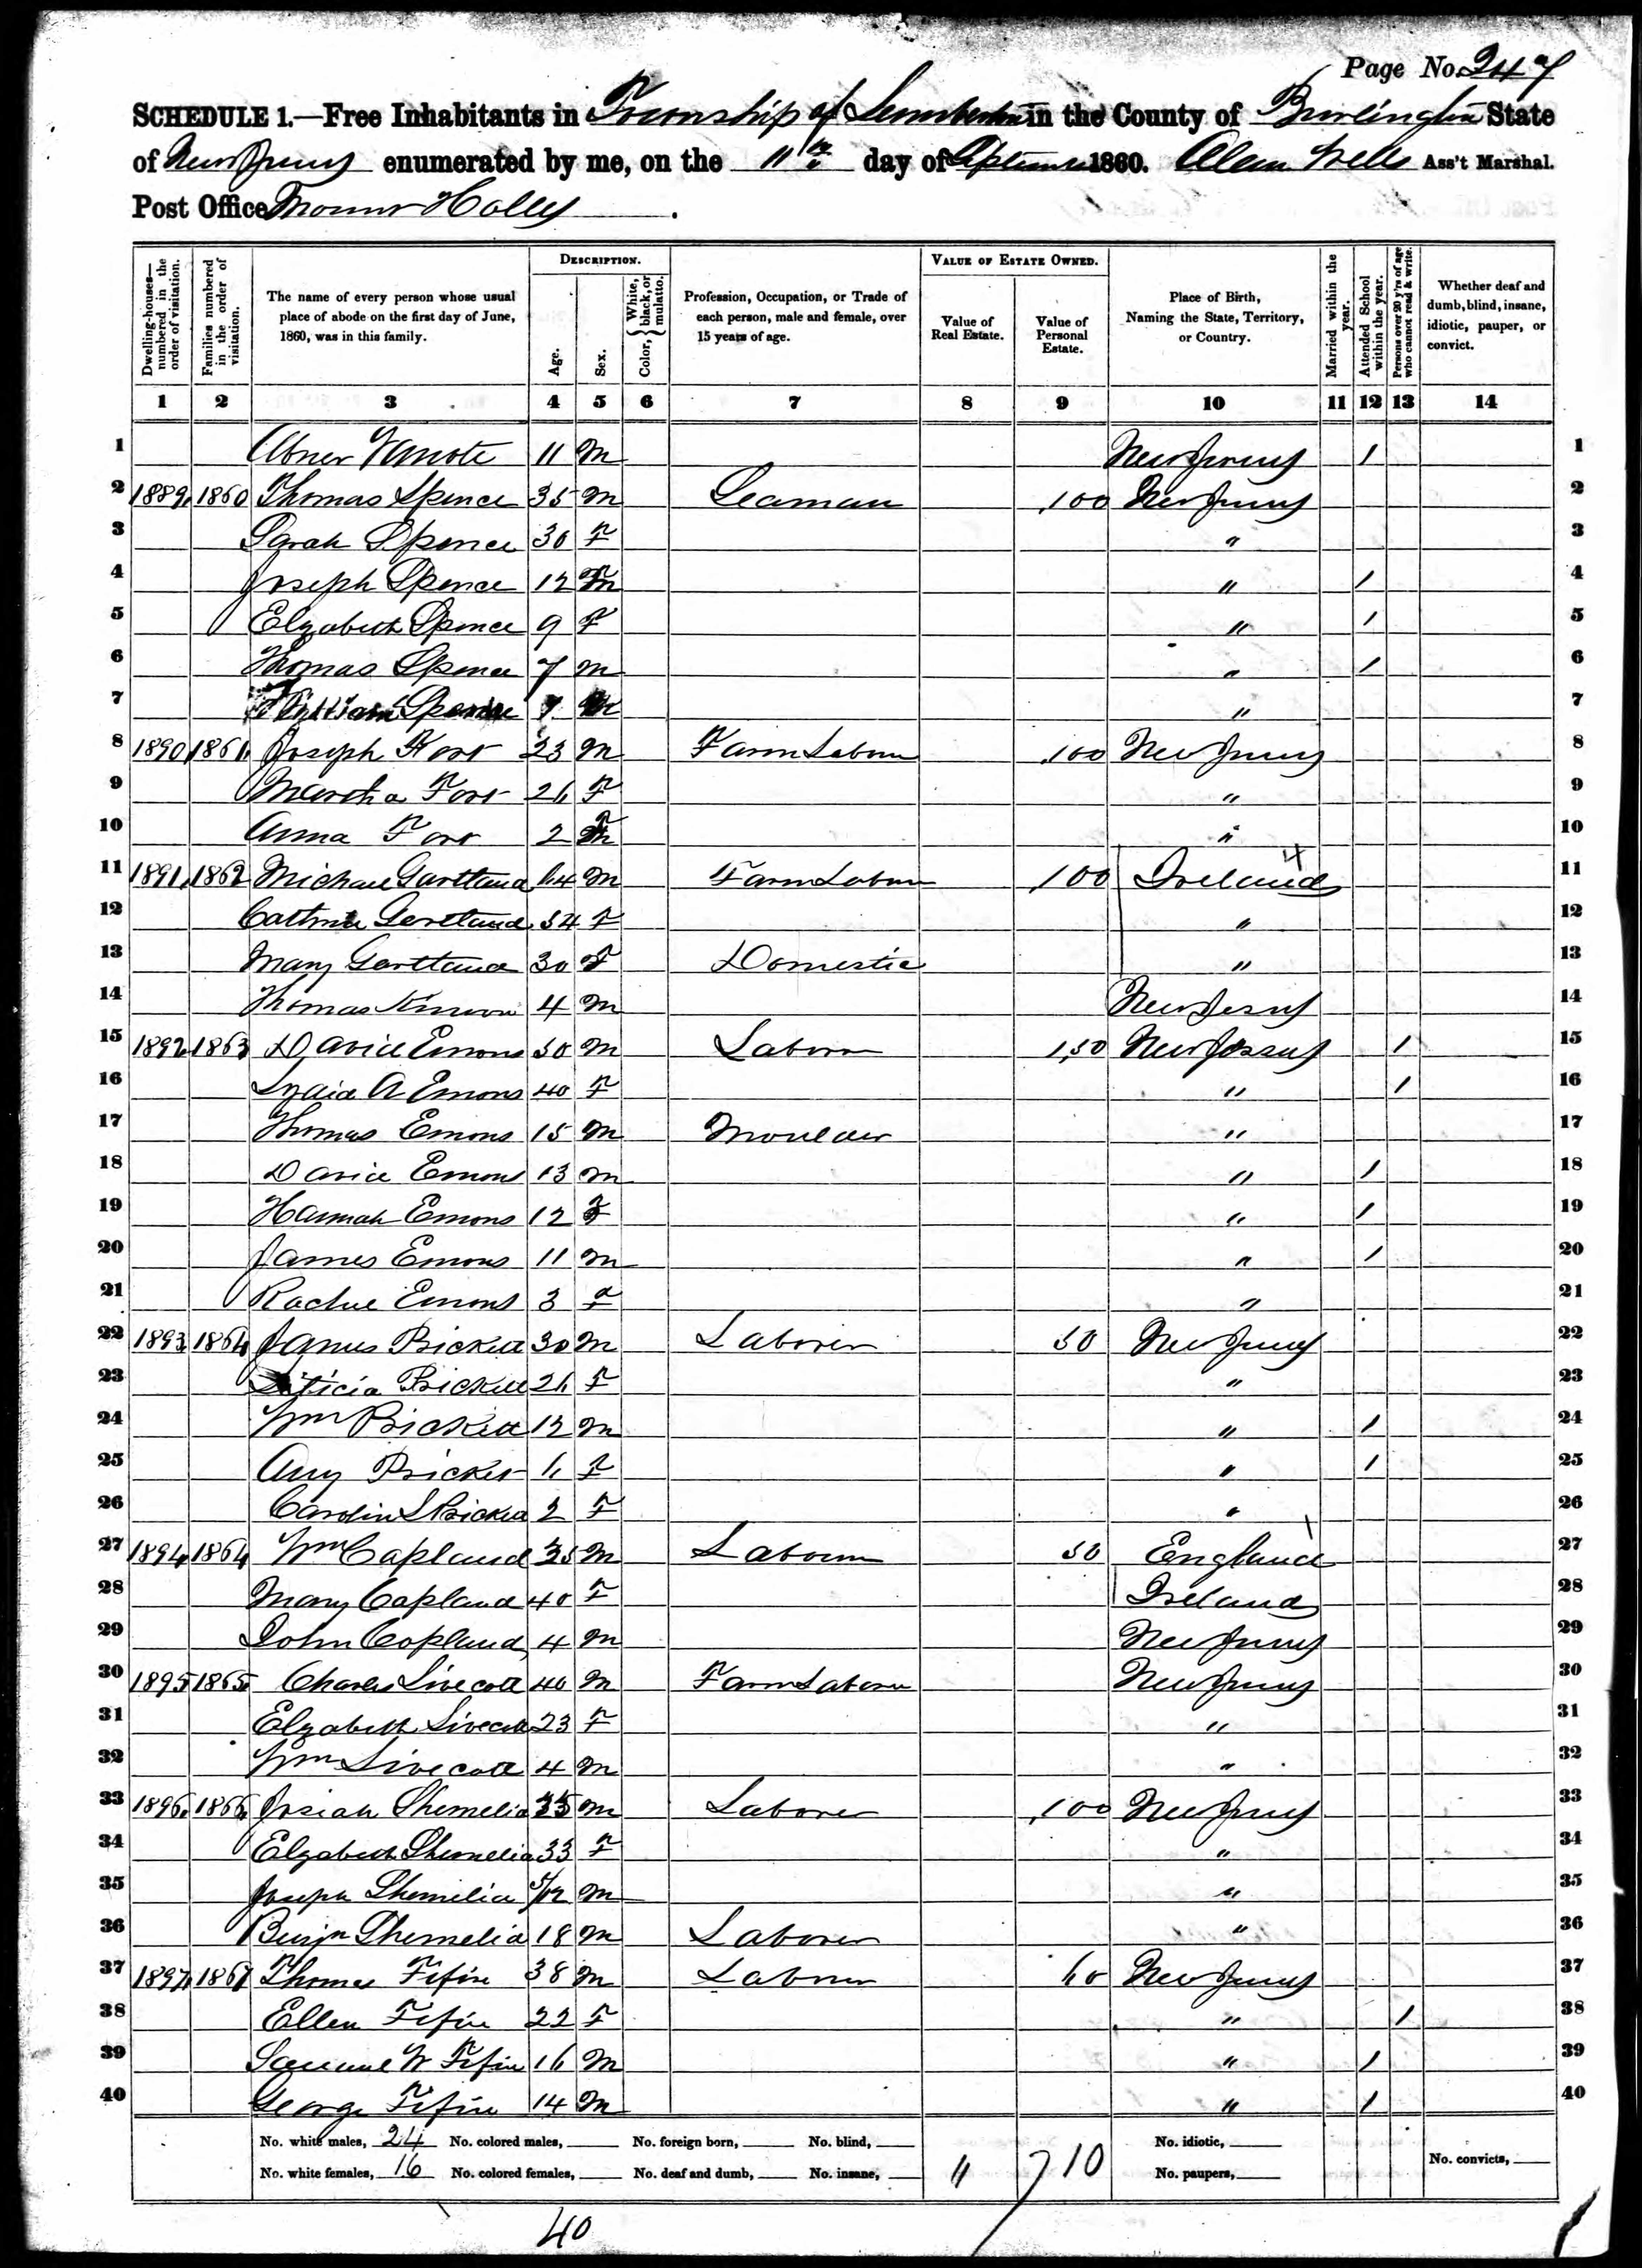 Page No. 247
SCHEDULE 1.—Free Inhabitants in Township of Lumberton in the County of Burlington State
of New Jersey enumerated by me, on the 11th day of September 1860. Allen Wells Ass't Marshal.
Post Office Mount Holly
Dwelling-houses—numbered in the order of visitation.
Families numbered in the order of visitation.
The name of every person whose usual place of abode on the first day of June, 1860, was in this family.
DESCRIPTION.
Age.
Sex.
Color, { White, black, or mulatto.
Profession, Occupation, or Trade of each person, male and female, over 15 years of age.
VALUE OF ESTATE OWNED.
Value of Real Estate.
Value of Personal Estate.
Place of Birth, Naming the State, Territory, or Country.
Married within the year.
Attended School within the year.
Persons over 20 y'rs of age who cannot read & write.
Whether deaf and dumb, blind, insane, idiotic, pauper, or convict.
1 2 3 4 5 6 7 8 9 10 11 12 13 14
1 Abner 11 M New Jersey / 1
2 1889 1860 Thomas Spence 35 M Seaman 100 New Jersey 2
3 Sarah Spence 30 F " 3
4 Joseph Spence 12 M " / 4
5 Elzabeth Spence 9 F " / 5
6 Thomas Spence 7 M " / 6
7 William Spence M " 7
8 1890 1861 Joseph Fort 23 M Farm Laborer 100 New Jersey 8
9 Martha Fort 26 F " 9
10 Anna Fort 2 F " 10
11 1891 1862 Michael Gartland 64 M Farm Laborer 100 Ireland 4 11
12 Gartland 54 F " 12
13 Mary Gartland 30 F Domestic " 13
14 Thomas 4 M New Jersey 14
15 1892 1863 David Emons 50 M Laborer 150 New Jersey / 15
16 Lydia A Emons 40 F " / 16
17 Thomas Emons 15 M Moulder " 17
18 David Emons 13 M " / 18
19 Hannah Emons 12 F " / 19
20 James Emons 11 M " / 20
21 Rachel Emons 3 F " 21
22 1893 1864 James Prickett 30 M Laborer 50 New Jersey 22
23 Leticia Prickett 26 F " 23
24 Wm Prickett 12 M " / 24
25 Amy Pricket 6 F " / 25
26 Carolin S Prickett 2 F " 26
27 1894 1864 Wm Copland 35 M Laborer 50 England 1 27
28 Mary Copland 40 F Ireland 28
29 John Copland 4 M New Jersey 29
30 1895 1865 Charles Livecott 40 M Farm Laborer New Jersey 30
31 Elzabeth Livecott 23 F " 31
32 Wm Livecott 4 M " 32
33 1896 1866 Josiah Shemelia 35 M Laborer 100 New Jersey 33
34 Elzabeth Shemelia 33 F " 34
35 Joseph Shemelia 5/12 M " 35
36 Benjn Shemelia 18 M Laborer " 36
37 1897 1867 Thomas Fifin 38 M Laborer 60 New Jersey 37
38 Ellen Fifin 22 F " / 38
39 Samuel W Fifin 16 M " / 39
40 George Fifin 14 M " / 40
No. white males, 24 No. colored males, No. foreign born, No. blind, No. idiotic,
No. white females, 16 No. colored females, No. deaf and dumb, No. insane, " 710 No. paupers, No. convicts,
40